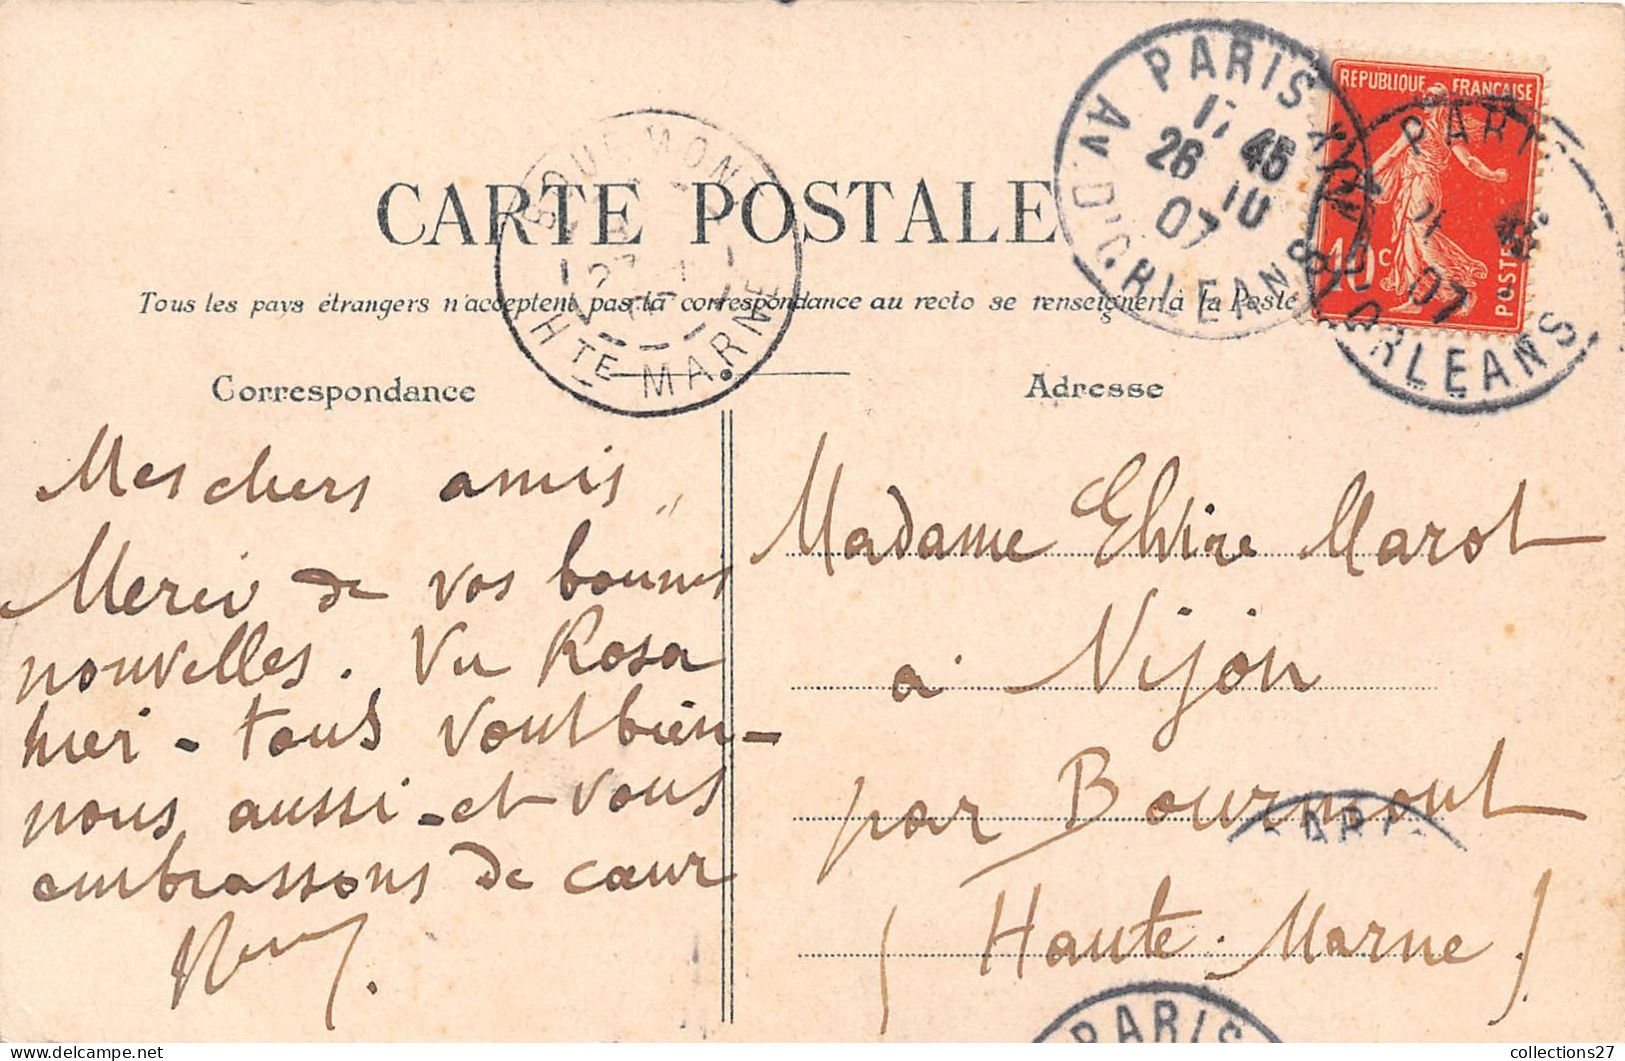 CARTE POSTALE
Tous les pays étrangers n'acceptent pas la correspondance au recto se renseigner à la Poste
Correspondance
Mes chers amis,
Merci de vos bonnes
nouvelles. Vu Rosa
hier - tous vont bien -
nous aussi - et vous
embrassons de cœur
Adresse
Madame Elvire Marot
à Nijon
par Bourmont
(Haute-Marne)
REPUBLIQUE FRANÇAISE
10 c
POSTES
PARIS XIV
45
26 10
07
AV. D'ORLEANS
PARIS
07
ORLEANS
BOURMONT
HTE MARNE
PARIS
PARIS
collections27